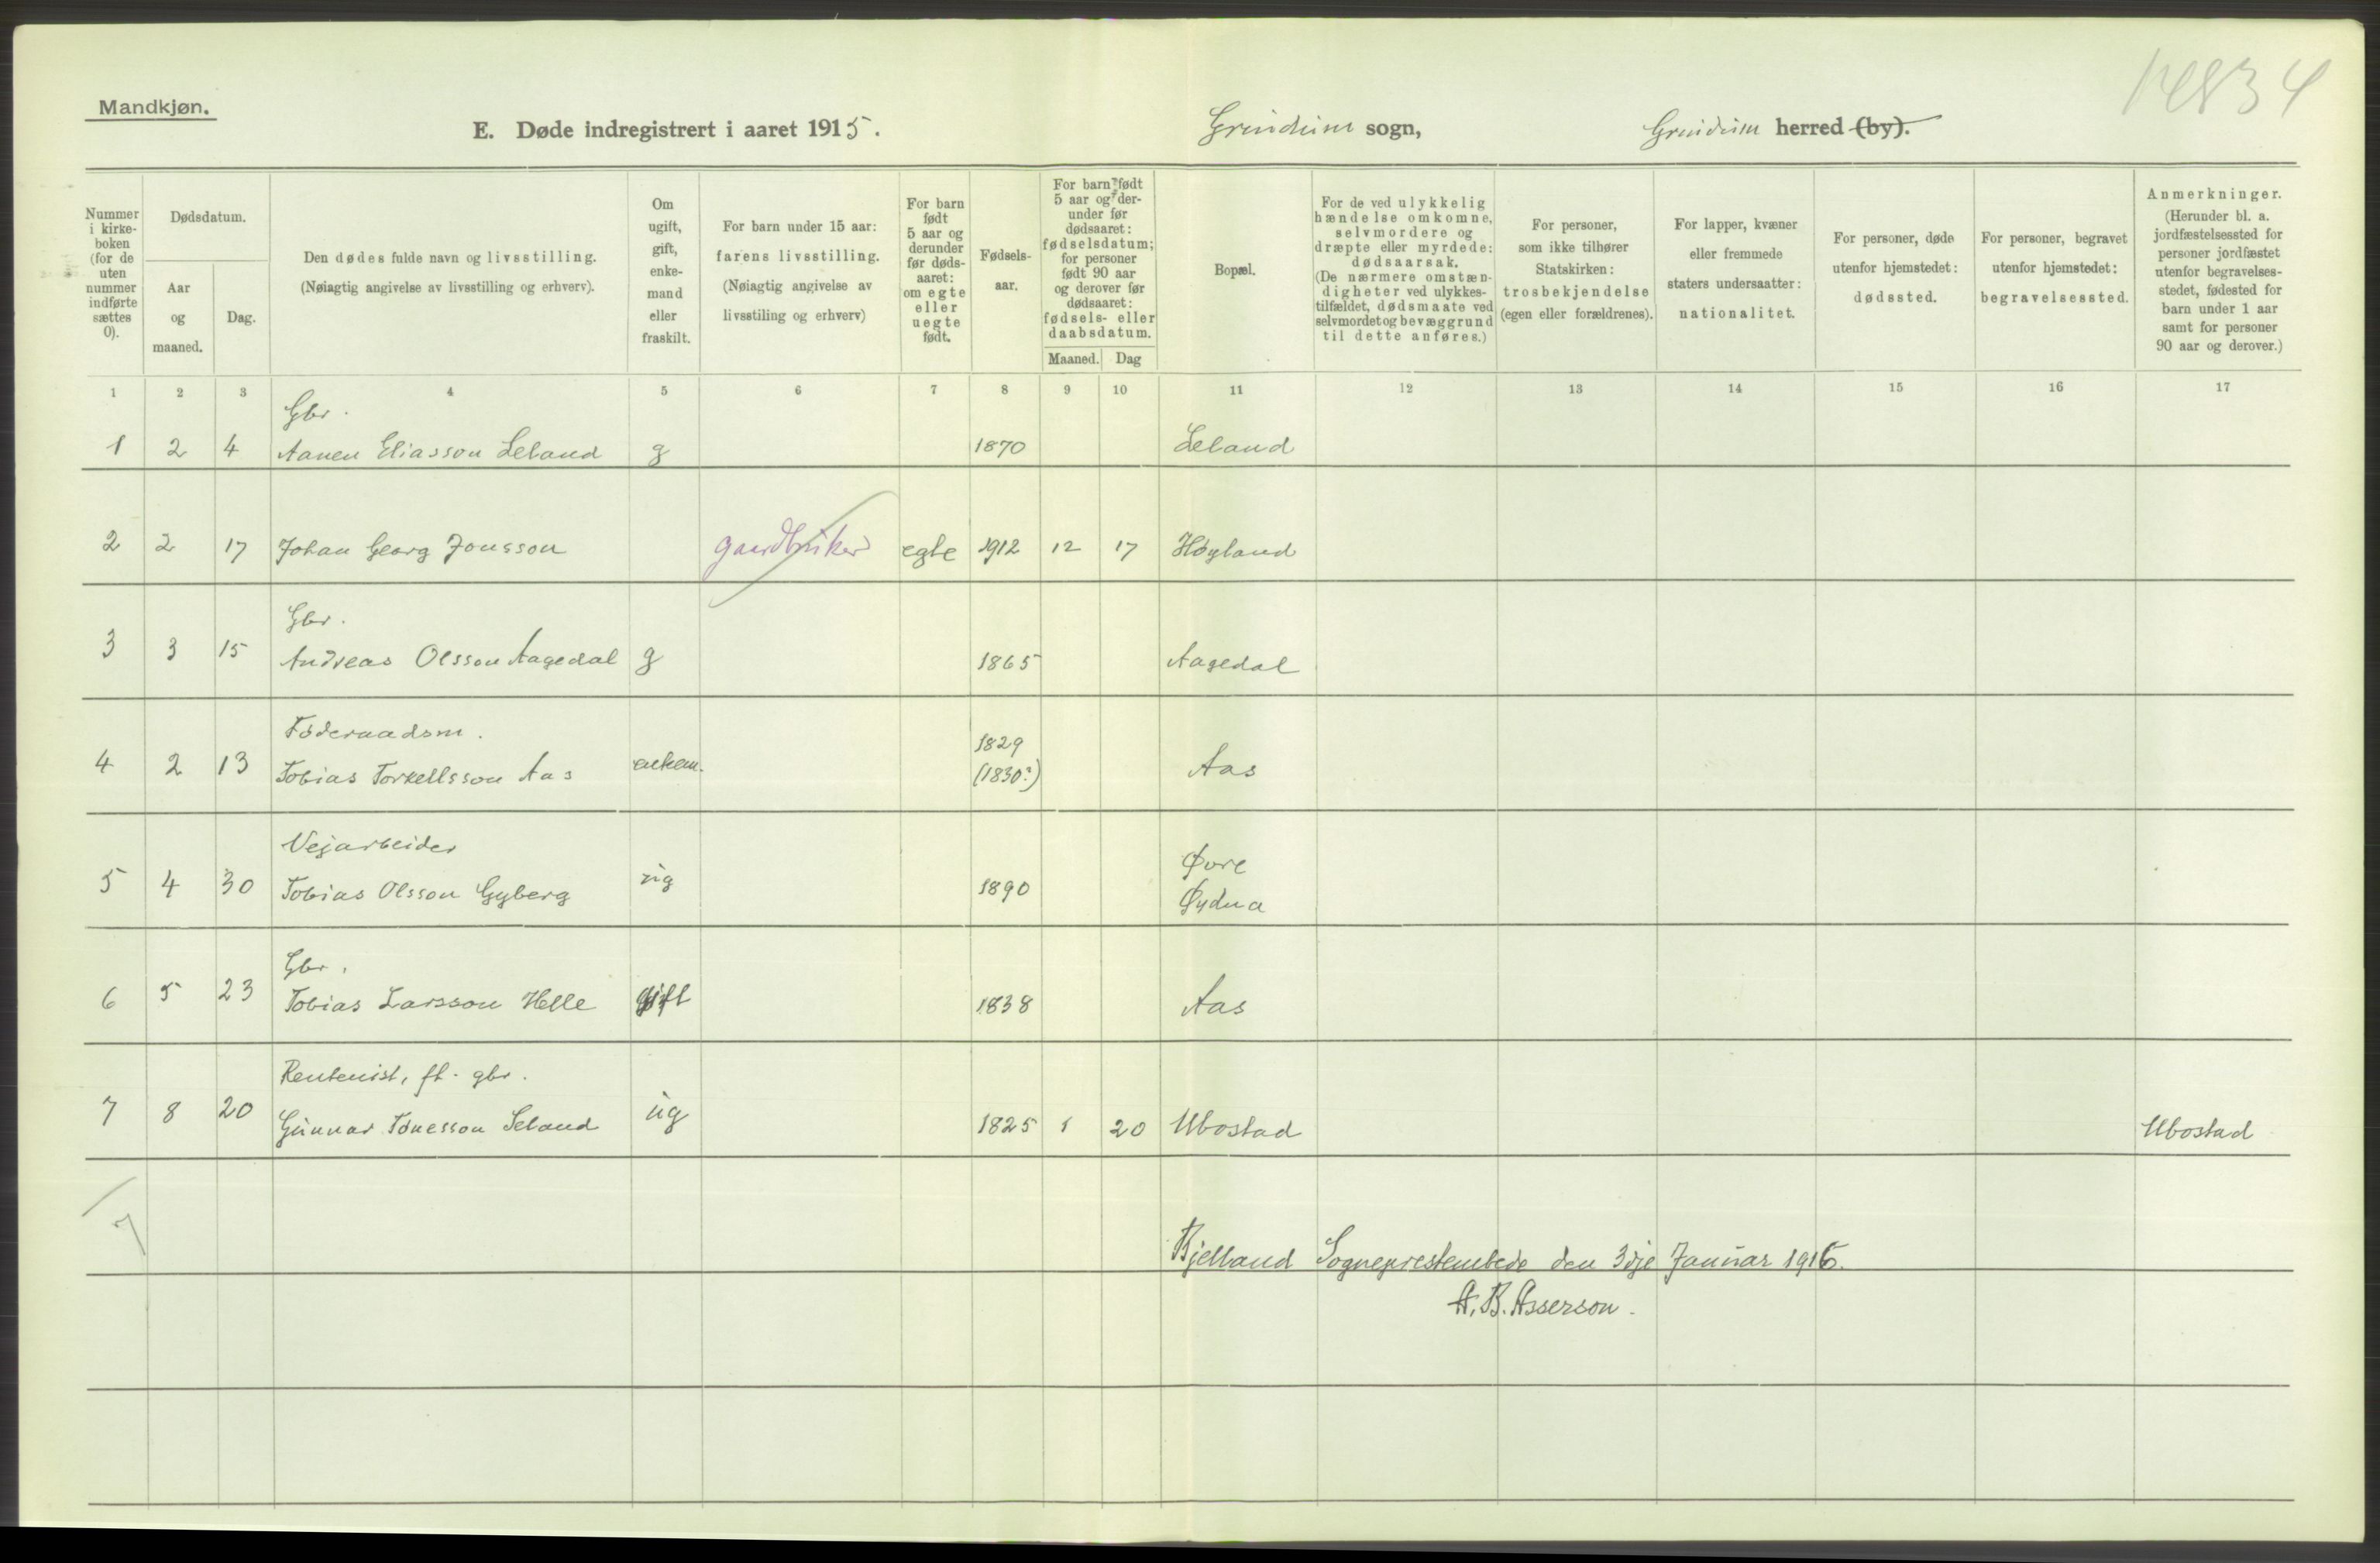 14834
Mandkjøn.
E. Døde indregistrert i aaret 1915. Grindum sogn, Grindum herred (by).
Nummer i kirke-boken (for de uten nummer indførte sættes 0).
Dødsdatum.
Aar og maaned.
Dag.
Den dødes fulde navn og livsstilling.
(Nøiagtig angivelse av livsstilling og erhverv).
Om ugift, gift, enke-mand eller fraskilt.
For barn under 15 aar: farens livsstilling.
(Nøiagtig angivelse av livsstiling og erhverv)
For barn født 5 aar og derunder før døds-aaret: om egte eller uegte født.
Fødsels-aar.
For barn født 5 aar og der-under før dødsaaret: fødselsdatum; for personer født 90 aar og derover før dødsaaret: fødsels- eller daabsdatum.
Maaned. Dag
Bopæl.
For de ved ulykkelig hændelse omkomne, selvmordere og dræpte eller myrdede: dødsaarsak.
(De nærmere omstæn-digheter ved ulykkes-tilfældet, dødsmaate ved selvmordet og bevæggrund til dette anføres.)
For personer, som ikke tilhører Statskirken: trosbekjendelse (egen eller forældrenes).
For lapper, kvæner eller fremmede staters undersaatter: nationalitet.
For personer, døde utenfor hjemstedet: dødssted.
For personer, begravet utenfor hjemstedet: begravelsessted.
Anmerkninger.
(Herunder bl. a. jordfæstelsessted for personer jordfæstet utenfor begravelses-stedet, fødested for barn under 1 aar samt for personer 90 aar og derover.)
1 2 3 4 5 6 7 8 9 10 11 12 13 14 15 16 17
Gbr.
1 2 4 Aanen Eliasson Leland g 1870 Leland
2 2 17 Johan Georg Jonsson gaardbruker egte 1912 12 17 Høyland
Gbr.
3 3 15 Andreas Olsson Aagedal g 1865 Aagedal
Føderaadsm.
4 2 13 Tobias Torkellsson Aas enkem. 1829 (1830?) Aas
Vejarbeider
5 4 30 Tobias Olsson Gyberg ug 1890 Øvre Øydna
Gbr.
6 5 23 Tobias Larsson Helle gift 1838 Aas
Rentenist, fh. gbr.
7 8 20 Gunnar Tønesson Seland ug 1825 1 20 Ubostad Ubostad
7
Bjelland Sogneprestembede den 3dje Januar 1916.
A. B. Asserson.